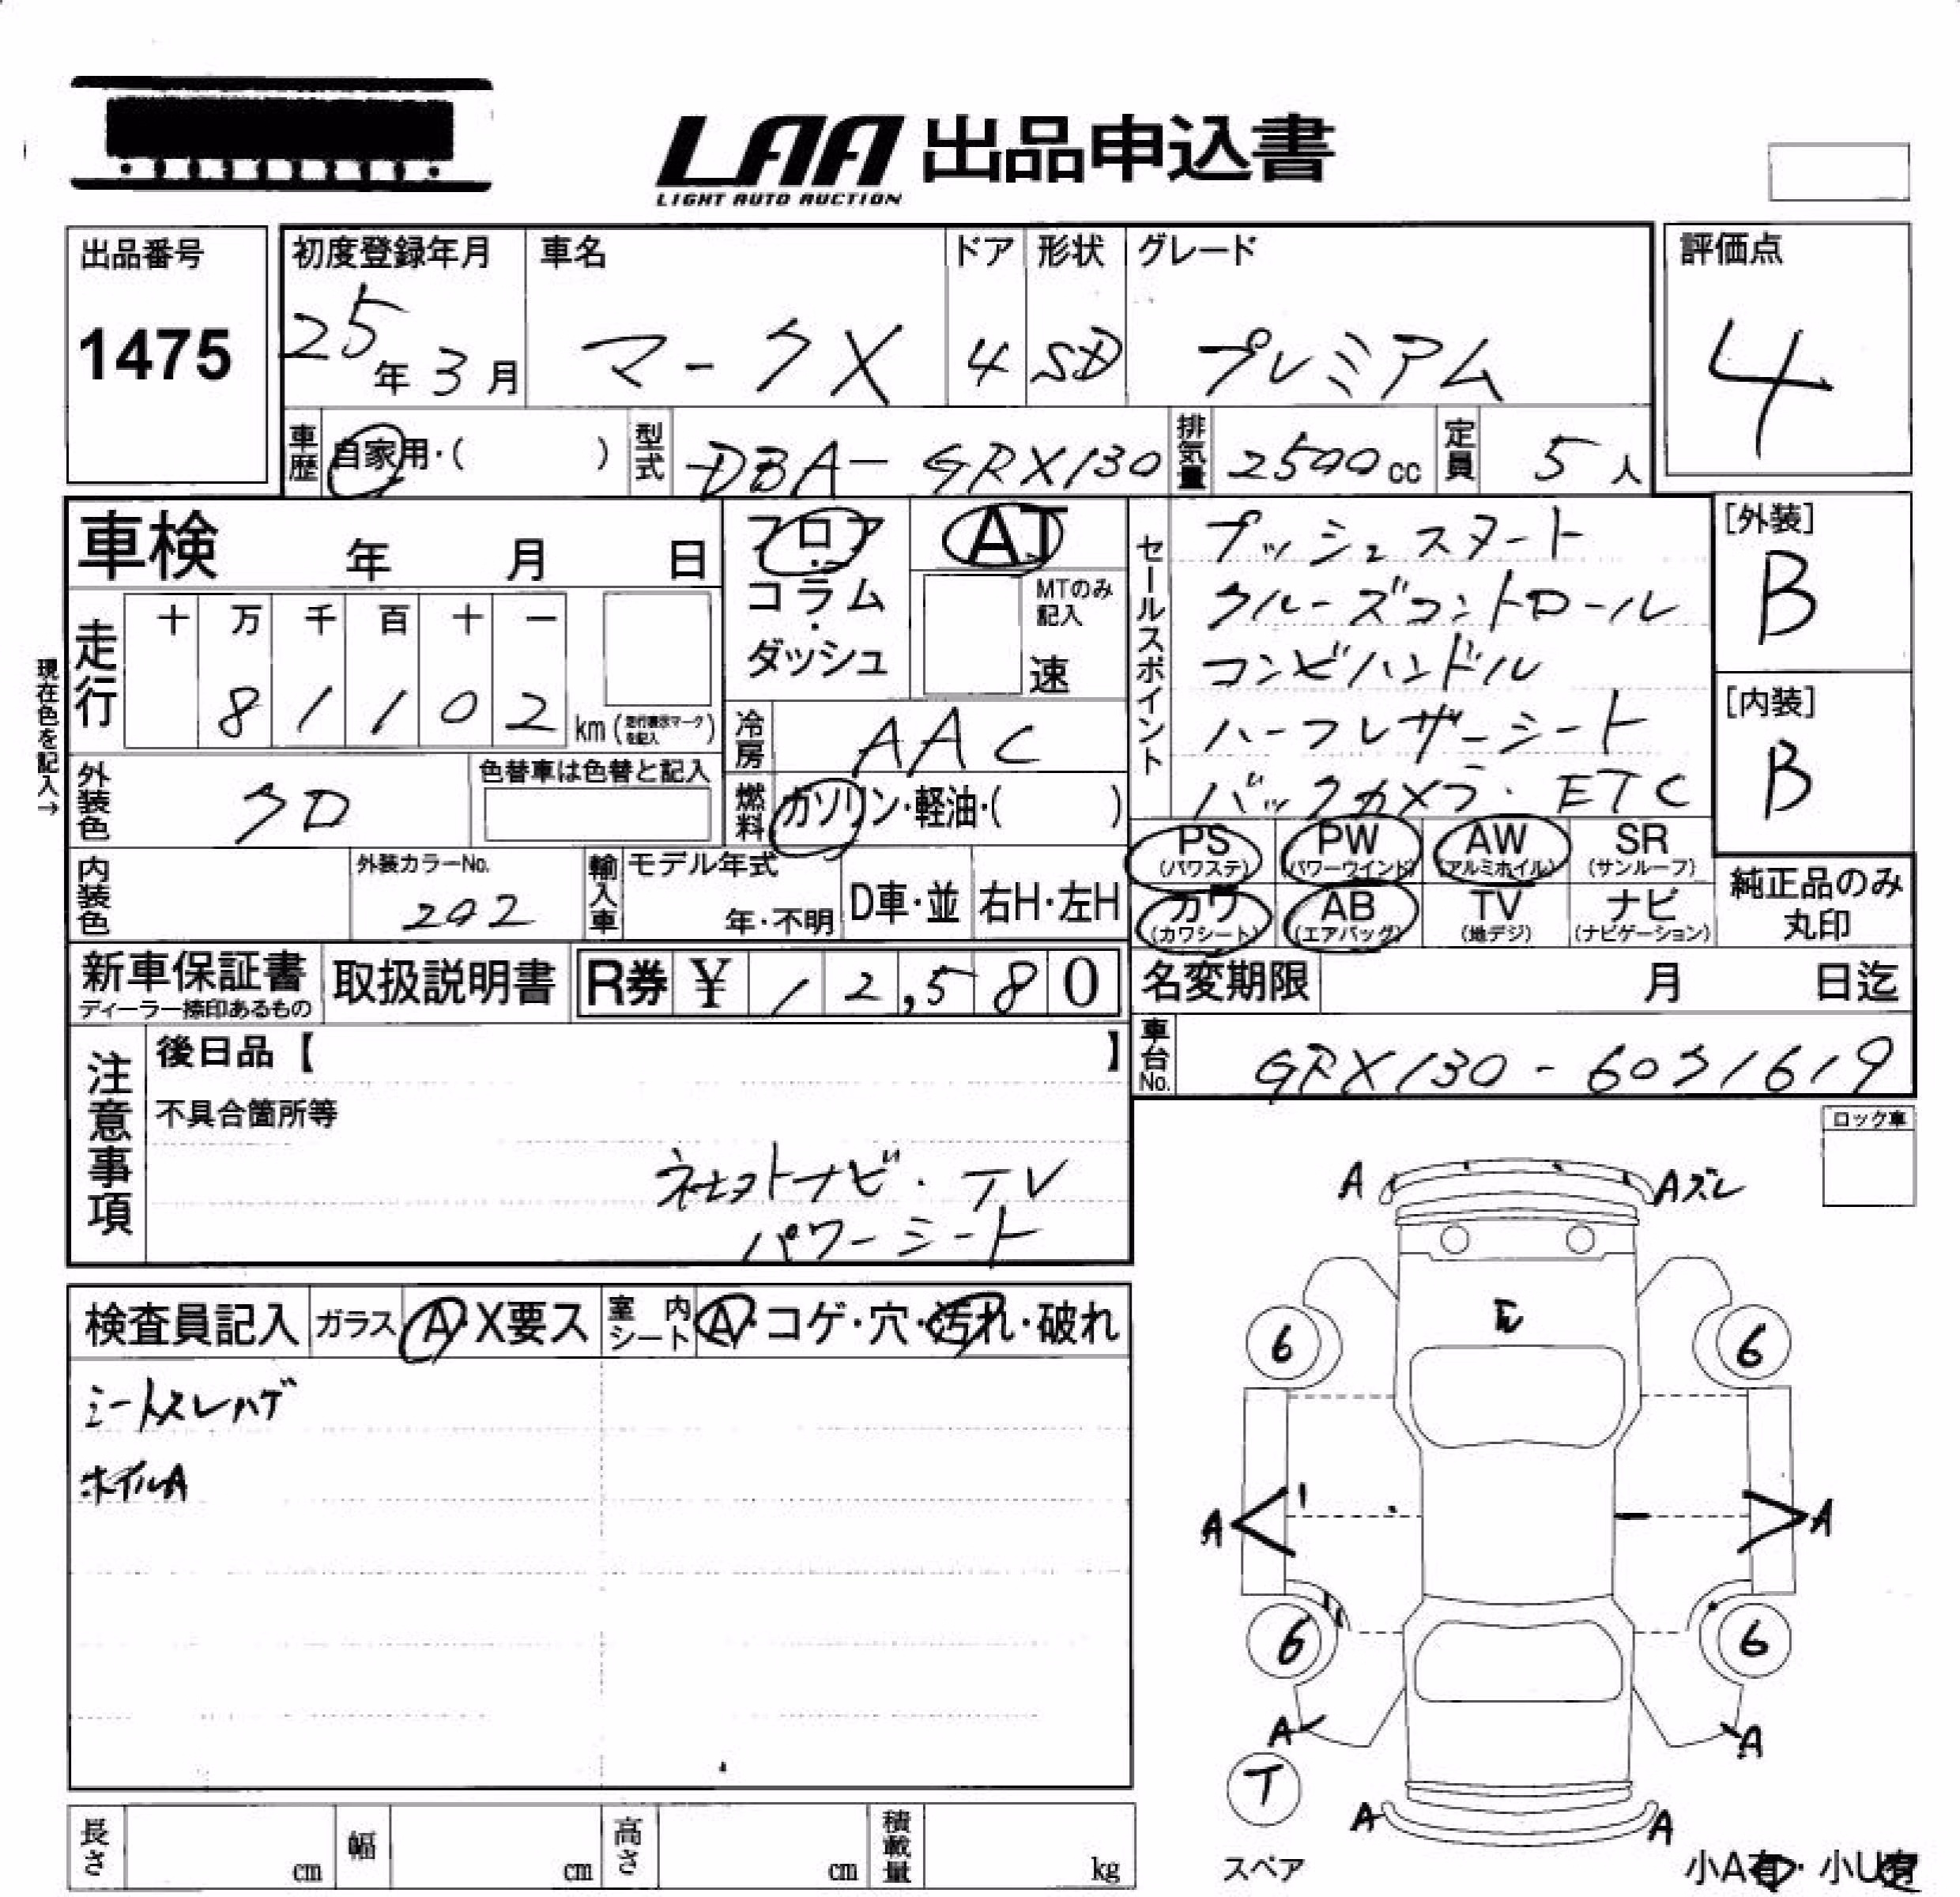 LAA 出品申込書
LIGHT AUTO AUCTION
出品番号
1475
初度登録年月
25年3月
車名
マークX
ドア
4
形状
SD
グレード
プレミアム
評価点
4
車歴
自家用・( )
型式
DBA-GRX130
排気量
2500cc
定員
5人
車検 年 月 日
フロア
・
コラム
・
ダッシュ
AT
MTのみ
記入
速
セールスポイント
プッシュスタート
クルーズコントロール
コンビハンドル
ハーフレザーシート
バックカメラ・ETC
[外装]
B
[内装]
B
現在色を記入→
走行
十 万 千 百 十 一
8 1 1 0 2 km(走行表示マークを記入)
冷房
AAC
外装色
クロ
色替車は色替と記入
燃料
ガソリン・軽油・( )
PS
(パワステ)
PW
(パワーウインド)
AW
(アルミホイル)
SR
(サンルーフ)
カワ
(カワシート)
AB
(エアバッグ)
TV
(地デジ)
ナビ
(ナビゲーション)
純正品のみ
丸印
内装色
外装カラーNo.
202
輸入車
モデル年式
年・不明
D車・並
右H・左H
新車保証書
ディーラー捺印あるもの
取扱説明書
R券 ¥ 12,580
名変期限 月 日迄
車台No.
GRX130-6031619
注意事項
後日品【 】
不具合箇所等
社外ナビ・TV
パワーシート
ロック車
検査員記入
ガラス
A・X要ス
室内シート
A・コゲ・穴・汚れ・破れ
シートスレハゲ
ホイルA
A
Aズレ
6
6
A
A
6
6
A
A
T
スペア
A
A
小A有・小U有
長さ cm
幅 cm
高さ cm
積載量 kg